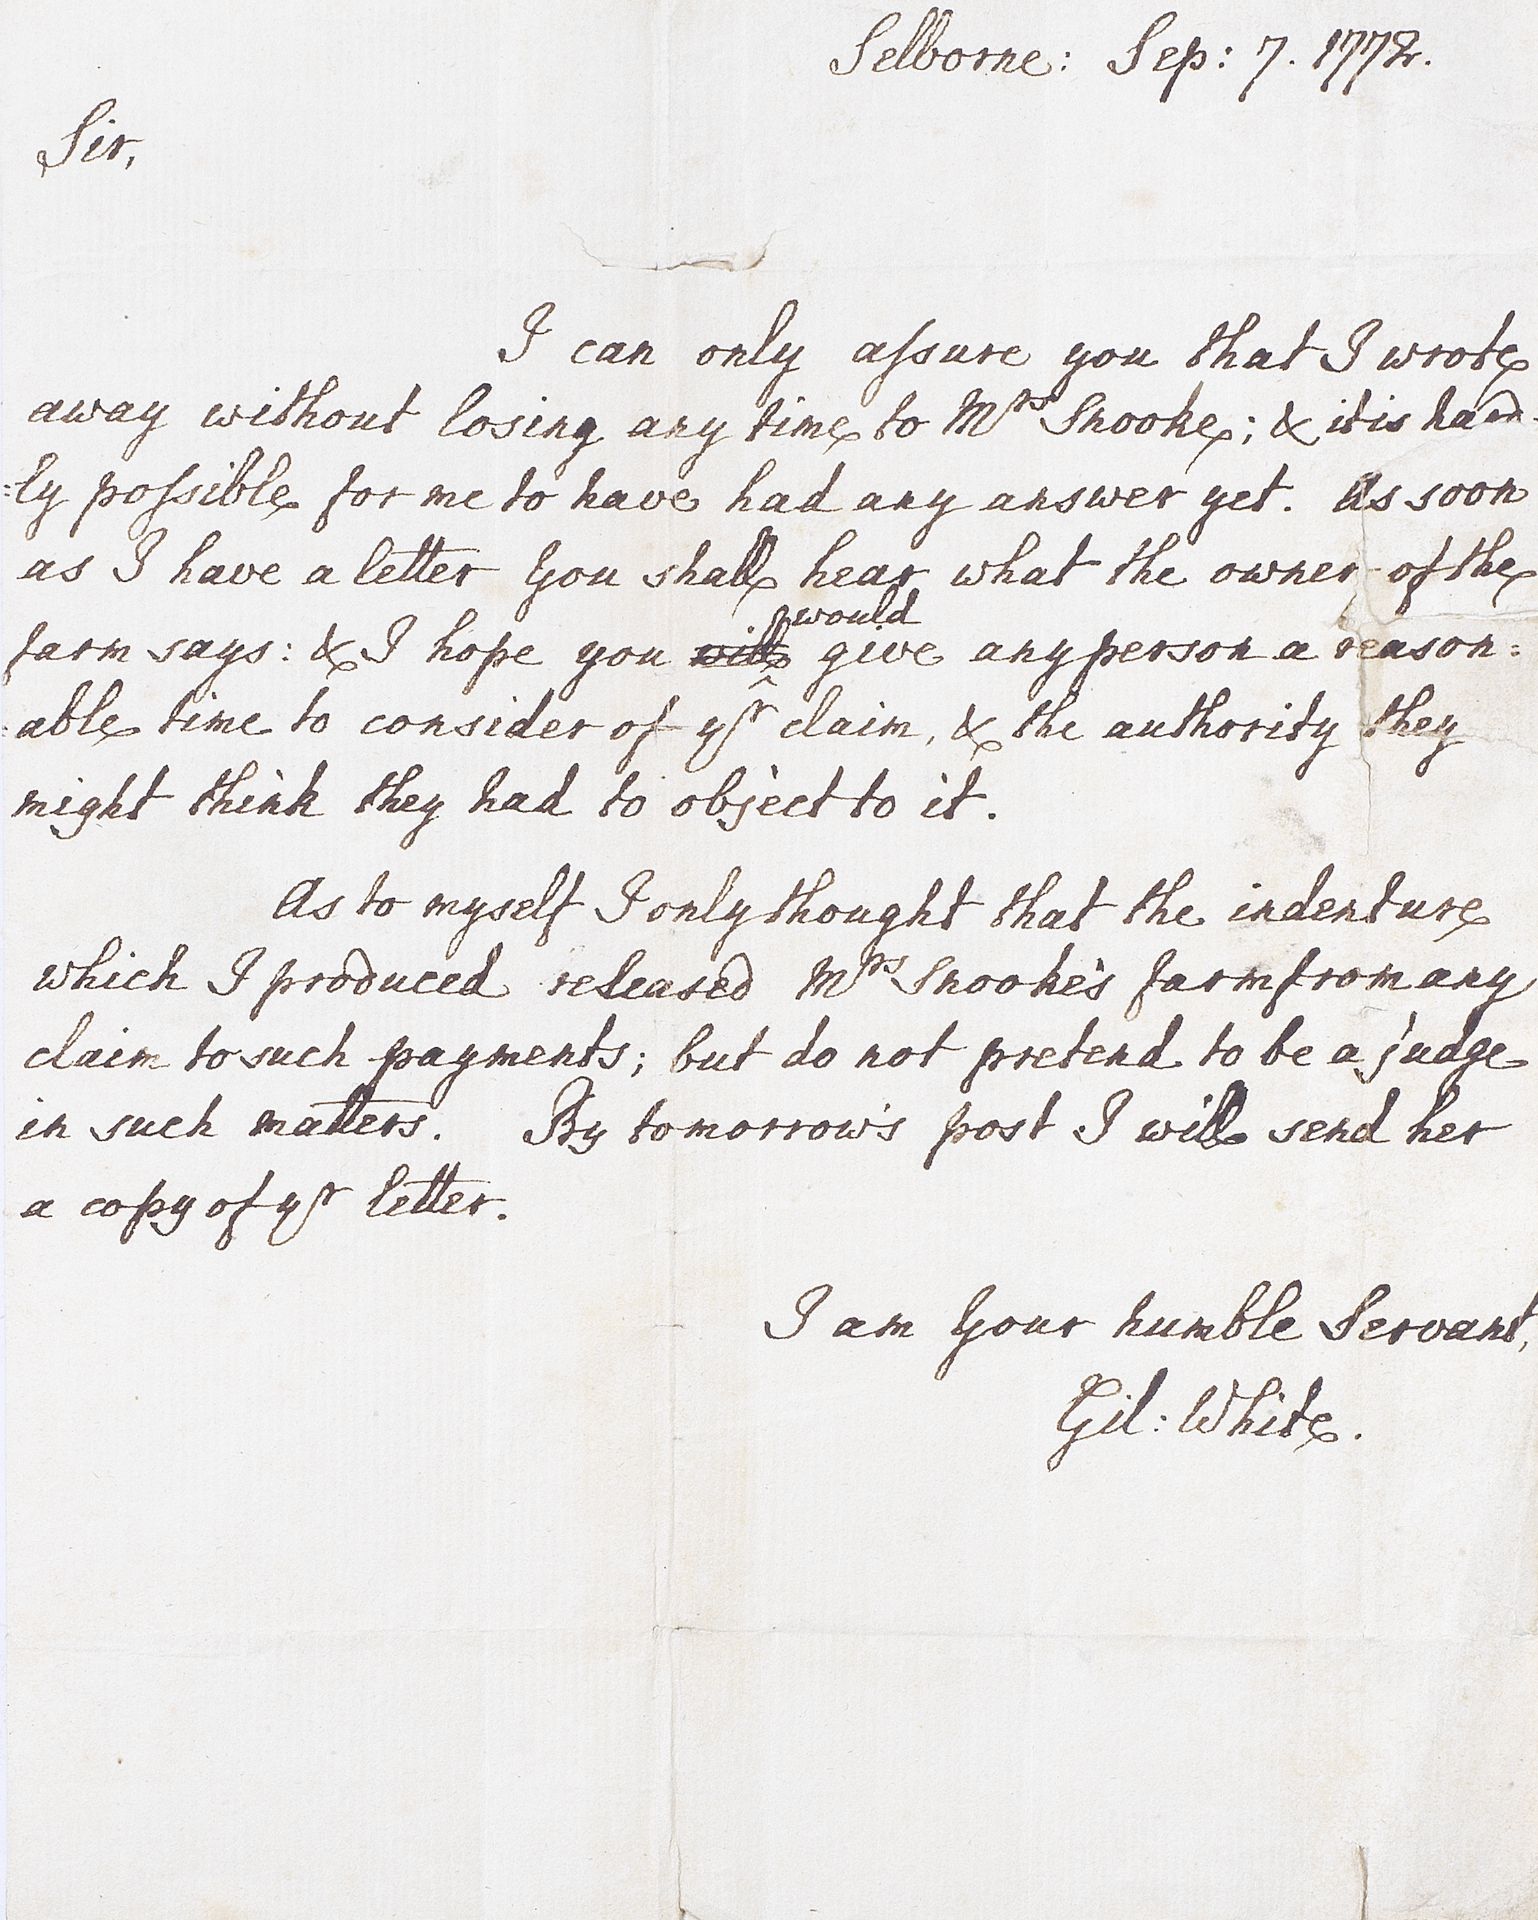 Selborne: Sep: 7. 1772.
Sir,
I can only aſsure you that I wrote
away without losing any time to Mrs Snooke; & it is hard=
=ly poſsible for me to have had any answer yet. As soon
as I have a letter You shall hear what the owner of the
farm says: & I hope you will would give any person a reason=
=able time to consider of yr claim, & the authority they
might think they had to object to it.
As to myself I only thought that the indenture
which I produced released Mrs Snooke's farm from any
claim to such payments; but do not pretend to be a judge
in such matters. By tomorrow's post I will send her
a copy of yr letter.
I am Your humble Servant,
Gil: White.